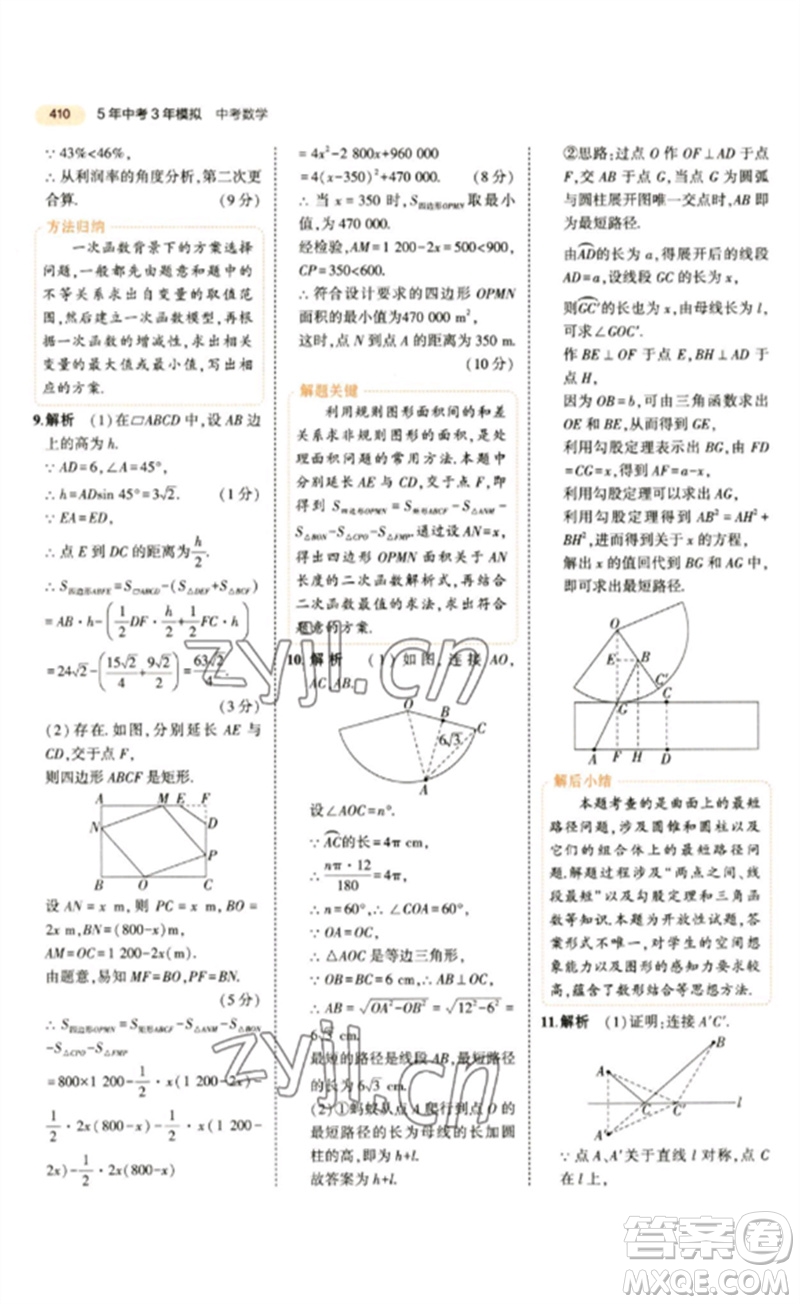 410 5年中考3年模拟 中考数学
∵ 43%<46%,
∴ 从利润率的角度分析,第二次更
合算. (9分)
方法归纳
一次函数背景下的方案选择
问题,一般都先由题意和题中的
不等关系求出自变量的取值范
围,然后建立一次函数模型,再根
据一次函数的增减性,求出相关
变量的最大值或最小值,写出相
应的方案.
9.解析 (1)在▱ABCD中,设AB边
上的高为h.
∵ AD=6,∠A=45°,
∴ h=ADsin 45°=3√2. (1分)
∵ EA=ED,
∴ 点E到DC的距离为h/2.
∴ S四边形ABFE=S▱ABCD-(S△DEF+S△BCF)
=AB·h-(1/2 DF·h/2+1/2 FC·h)
=24√2-(15√2/4+9√2/2)=63√2/4.
(3分)
(2)存在.如图,分别延长AE与
CD,交于点F,
则四边形ABCF是矩形.
A M E F
N D
P
B O C
设AN=x m,则PC=x m,BO=
2x m,BN=(800-x)m,
AM=OC=(1 200-2x)m.
由题意,易知MF=BO,PF=BN.
(5分)
∴ S四边形OPMN=S矩形ABCF-S△ANM-S△BON
-S△CPO-S△FMP
=800×1 200-1/2·x(1 200-2x)-
1/2·2x(800-x)-1/2·x(1 200-
2x)-1/2·2x(800-x)
=4x²-2 800x+960 000
=4(x-350)²+470 000. (8分)
∴ 当x=350时,S四边形OPMN取最小
值,为470 000.
经检验,AM=1 200-2x=500<900,
CP=350<600.
∴ 符合设计要求的四边形OPMN
面积的最小值为470 000 m²,
这时,点N到点A的距离为350 m.
(10分)
解题关键
利用规则图形面积间的和差
关系求非规则图形的面积,是处
理面积问题的常用方法.本题中
分别延长AE与CD,交于点F,
得到S四边形OPMN=S矩形ABCF-S△ANM-
S△BON-S△CPO-S△FMP.通过设AN=x,
得出四边形OPMN面积关于AN
长度的二次函数解析式,再结合
二次函数最值的求法,求出符合
题意的方案.
10.解析 (1)如图,连接AO,
AC,AB.
O B C
6√3
A
设∠AOC=n°.
∵ AC⌒的长=4π cm,
∴ nπ·12/180=4π,
∴ n=60°,∴ ∠COA=60°.
∵ OA=OC,
∴ △AOC是等边三角形,
∵ OB=BC=6 cm,
∴ AB=√(OA²-OB²)=√(12²-6²)=
6√3 cm.
最短的路径是线段AB,最短路径
的长为6√3 cm.
(2)①蚂蚁从点A爬行到点O的
最短路径的长为母线的长加圆
柱的高,即为h+l.
故答案为h+l.
②思路:过点O作OF⊥AD于点
F,交AD⌒于点G,此点为圆弧
与圆柱展开图唯一交点时,AB即
为最短路径.
由AD⌒的长为a,得展开后的线段
AD=a,设线段GC的长为x,
则GC'⌒的长也为x,由母线长为l,
可求∠GOC'.
作BE⊥OF于点E,BH⊥AD于
点H,
因为OB=b,可由三角函数求出
OE和BE,从而得到GE,
利用勾股定理表示出BG,由FD
=CG=x,得到AF=a-x,
利用勾股定理可以求出AG,
利用勾股定理得到AB²=AH²+
BH²,进而得到关于x的方程,
解出x的值回代到AB的长度,
即可求出最短路径.
O
E B
C' C
G
A F H D
解后小结
本题考查的是曲面上的最短
路径问题,涉及圆锥和圆柱以及
它们的组合体上的最短路径问
题.解题过程涉及“两点之间、线
段最短”以及勾股定理和三角函
数等知识.本题为开放性试题,答
案形式不唯一,对学生的空间想
象能力以及计算能力要求比较
高,蕴含了数形结合等思想方法.
11.解析 (1)证明:连接A'C'.
B
A
C C' l
A'
∵ 点A、A'关于直线l对称,点C
在l上,
zyjl.cn
zyjl.cn
答案圈
MXQE.COM